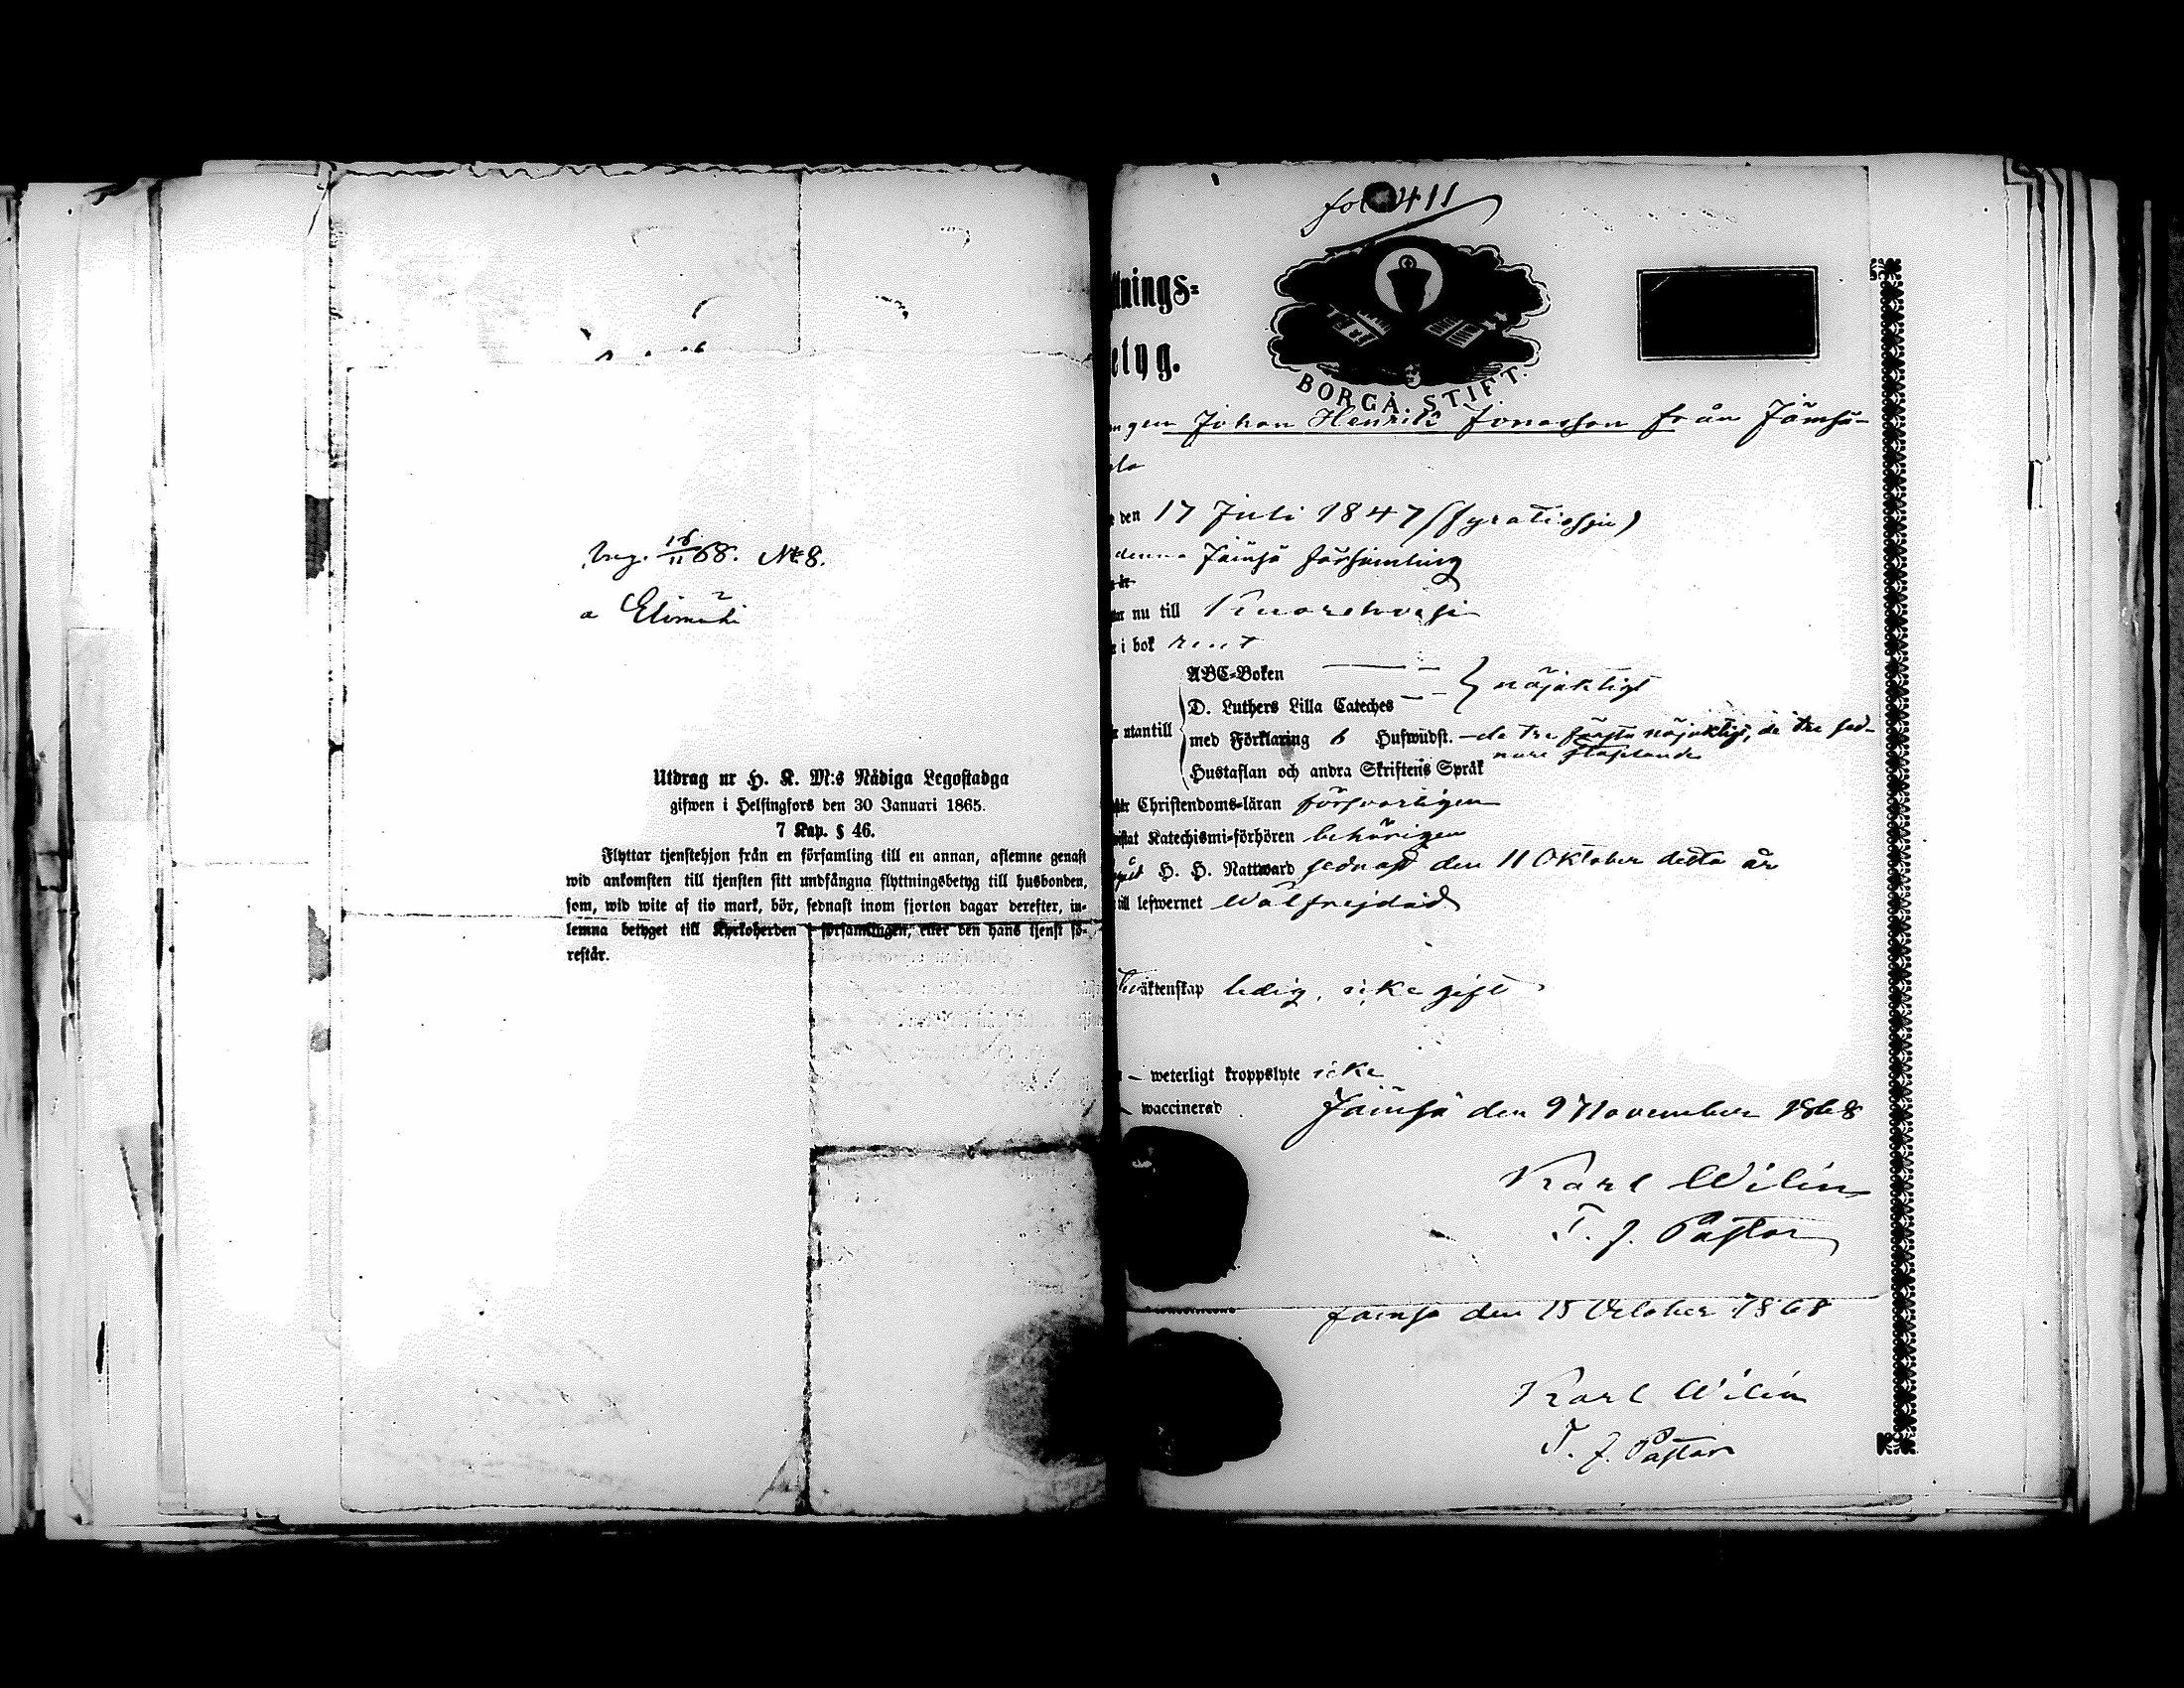 a Elimäki
Utdrag ur H. K. M:s Nådiga Legostadga
gifwen i Helsingfors den 30 Januari 1865.
7 Kap. § 46.
Flyttar tjenstehjon från en församling till en annan, aflemne genast
wid ankomsten till tjensten sitt undfångna flyttningsbetyg till husbonden,
som, wid wite af tio mark, bör, sednast inom fjorton dagar derefter, in-
lemna betyget till Kyrkoherden i församlingen, eller den hans tjenst fö-
restår.
fol. 411
tnings-
etyg.
BORGÅ STIFT.
ngen Johan Henrik Jonasson från Jämsä-
den 17 Juli 1847 (fyratiosju)
denna Jämsä församling
nu till Kuorehvesi
i bok rent
ABC-Boken
D. Luthers Lilla Cateches } nöjaktigt
utantill
med Förklaring 6 Hufwudst. – de tre första nöjaktigt, de tre sed-
nare staplande
Hustaflan och andra Skriftens Språk
Christendoms-läran försvarligen
Katechismi-förhören behörigen
H. H. Nattward sednast den 11 Oktober detta år
till lefwernet Wälfrejdad
äktenskap ledig, icke gift
– weterligt kroppslyte icke
waccinerad. Jämsä den 9 November 1868
Karl Wilén
T. f. Pastor
Jämsä den 15 October 1868
Karl Wilén
T. f. Pastor